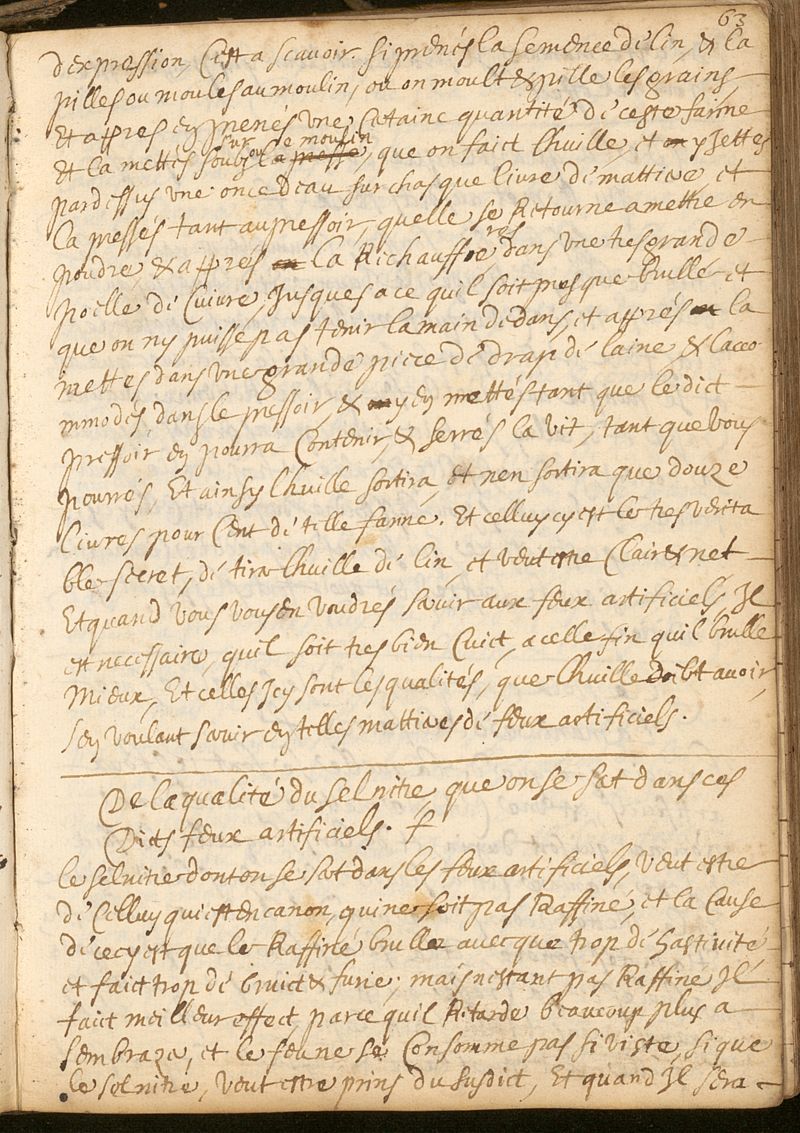 63
dexpression, C'est a scavoir. si prenés la semence de lin, & la
pilles ou moules au moulin, ou on moult & pille les grains,
Et appres en prenés une Certaine quantité de ceste farine
& la mettés soubs sur le moulin la presse, que on faict lhuille, et y Jettes
par dessus une once deau sur chasque livre de mattiere, et
la pressés tant au pressoir, quelle se Retourne a mettre en
poudre, & appres la Richaufferes dans une tres grande
poelle de Cuivre, Jusques a ce quil soit presque brullé et
que on ny puisse pas tenir la main dedans, et appres la
mettes dans une grande piece de drap de laine & lacco
mmodes dans le pressoir, & y en mettés tant que le dict
pressoir en pourra Contenir, & serrés la vit, tant que vous
pourrés, Et ainsy lhuille sortira, et nen sortira que douze
livres pour Cent de telle farine. Et celluy cy est le tres verita
ble secret, de tirer lhuille de lin, et veut estre Clair & net
Et quand vous vous en voudrés servir aux feux artificiels, Il
est necessaire, quil soit tres bien Cuict, a celle fin quil brulle
Mieux, Et celles Icy sont les qualités, que lhuille doibt avoir,
sen voulant servir en telles mattieres de feux artificiels.
De la qualité du sel nitre, que on se sert dans ces
Dicts feux artificiels.
le sel nitre dont on se sert dans les feux artificiels, veut estre
de Celluy qui est en canon, qui ne soit pas Raffiné, et la Cause
de cecy est que le Raffiné brulle avecque trop de hastivité
et faict trop de bruict & furie; mais nestant pas Raffine Il
faict meilleur effect, parce quil Retarde beaucoup plus a
sembrazer, et le feu ne se Consomme pas si viste, si que
le sel nitre, veut estre prins du susdict, Et quand Il sera